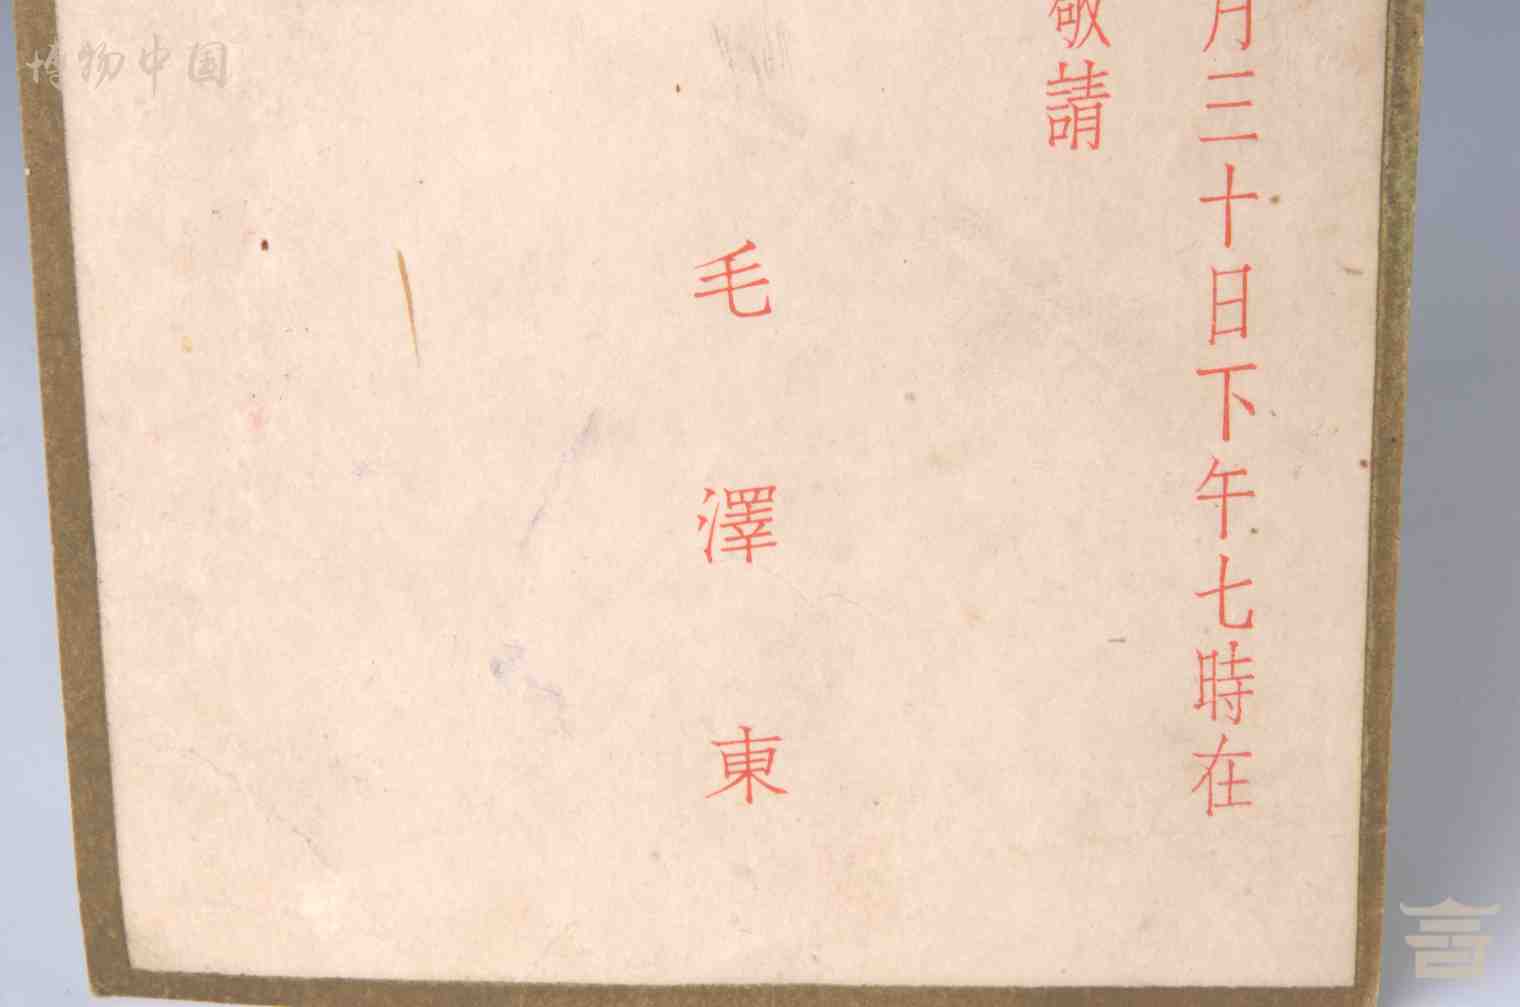 月三十日下午七時在
敬請
毛澤東
博物中国